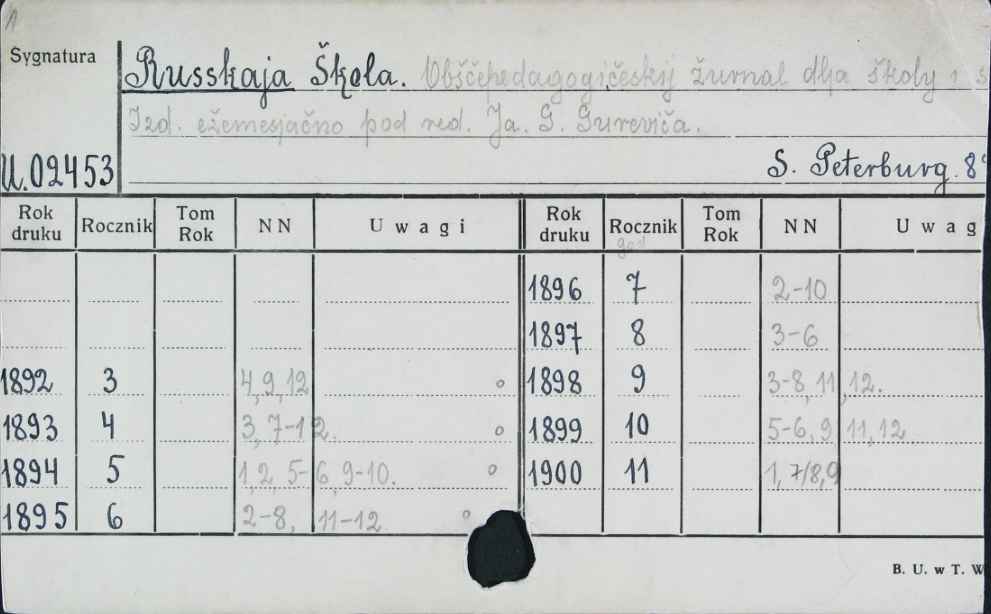 1
Sygnatura
Russkaja Škola. Obščepedagogičeskij žurnal dlja školy i s
Izd. ežemesjačno pod red. Ja. G. Gureviča.
U.02453
S. Peterburg. 8°
Rok druku Rocznik Tom Rok NN Uwagi Rok druku Rocznik Tom Rok NN Uwag
god
1896 7 2-10
1897 8 3-6
1892 3 4,9,12 o 1898 9 3-8,11,12.
1893 4 3,7-12. o 1899 10 5-6,9,11,12
1894 5 1,2,5-6,9-10. o 1900 11 1,7/8,9
1895 6 2-8, 11-12 o
B. U. w T. W